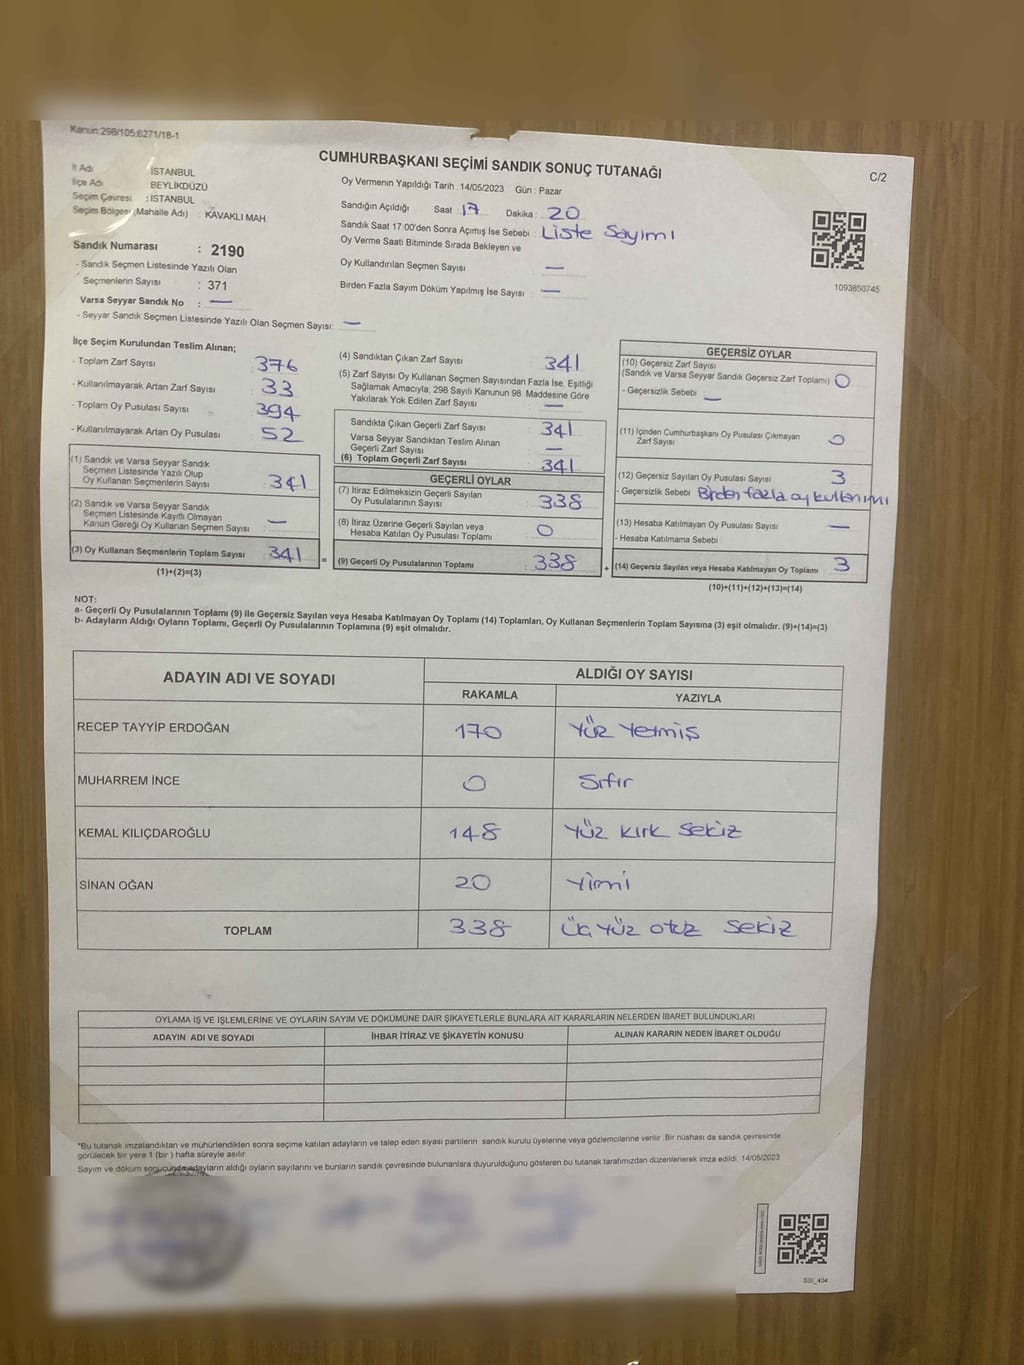 Kanun:298/105;6271/18-1
CUMHURBAŞKANI SEÇİMİ SANDIK SONUÇ TUTANAĞI
C/2
İl Adı : İSTANBUL
İlçe Adı : BEYLİKDÜZÜ
Seçim Çevresi : İSTANBUL
Seçim Bölgesi (Mahalle Adı) : KAVAKLI MAH
Sandık Numarası : 2190
- Sandık Seçmen Listesinde Yazılı Olan
Seçmenlerin Sayısı : 371
Varsa Seyyar Sandık No : —
- Seyyar Sandık Seçmen Listesinde Yazılı Olan Seçmen Sayısı: —
Oy Vermenin Yapıldığı Tarih : 14/05/2023 Gün : Pazar
Sandığın Açıldığı Saat : 17 Dakika : 20
Sandık Saat 17:00'den Sonra Açımış İse Sebebi : Liste Sayımı
Oy Verme Saati Bitiminde Sırada Bekleyen ve
Oy Kullandırılan Seçmen Sayısı —
Birden Fazla Sayım Döküm Yapılmış İse Sayısı : —
1093850745
İlçe Seçim Kurulundan Teslim Alınan;
- Toplam Zarf Sayısı 376
- Kullanılmayarak Artan Zarf Sayısı 33
- Toplam Oy Pusulası Sayısı 394
- Kullanılmayarak Artan Oy Pusulası 52
(1) Sandık ve Varsa Seyyar Sandık
Seçmen Listesinde Yazılı Olup
Oy Kullanan Seçmenlerin Sayısı 341
(2) Sandık ve Varsa Seyyar Sandık
Seçmen Listesinde Kayıtlı Olmayan
Kanun Gereği Oy Kullanan Seçmen Sayısı —
(3) Oy Kullanan Seçmenlerin Toplam Sayısı 341 =
(1)+(2)=(3)
(4) Sandıktan Çıkan Zarf Sayısı 341
(5) Zarf Sayısı Oy Kullanan Seçmen Sayısından Fazla İse, Eşitliği
Sağlamak Amacıyla; 298 Sayılı Kanunun 98. Maddesine Göre
Yakılarak Yok Edilen Zarf Sayısı : —
Sandıkta Çıkan Geçerli Zarf Sayısı 341
Varsa Seyyar Sandıktan Teslim Alınan
Geçerli Zarf Sayısı —
(6) Toplam Geçerli Zarf Sayısı 341
GEÇERLİ OYLAR
(7) İtiraz Edilmeksizin Geçerli Sayılan
Oy Pusulalarının Sayısı 338
(8) İtiraz Üzerine Geçerli Sayılan veya
Hesaba Katılan Oy Pusulası Toplamı 0
(9) Geçerli Oy Pusulalarının Toplamı 338 +
GEÇERSİZ OYLAR
(10) Geçersiz Zarf Sayısı
(Sandık ve Varsa Seyyar Sandık Geçersiz Zarf Toplamı) 0
- Geçersizlik Sebebi —
(11) İçinden Cumhurbaşkanı Oy Pusulası Çıkmayan
Zarf Sayısı 0
(12) Geçersiz Sayılan Oy Pusulası Sayısı 3
- Geçersizlik Sebebi Birden fazla oy kullanımı
(13) Hesaba Katılmayan Oy Pusulası Sayısı —
- Hesaba Katılmama Sebebi
(14) Geçersiz Sayılan veya Hesaba Katılmayan Oy Toplamı 3
(10)+(11)+(12)+(13)=(14)
NOT:
a- Geçerli Oy Pusulalarının Toplamı (9) ile Geçersiz Sayılan veya Hesaba Katılmayan Oy Toplamı (14) Toplamları, Oy Kullanan Seçmenlerin Toplam Sayısına (3) eşit olmalıdır. (9)+(14)=(3)
b- Adayların Aldığı Oyların Toplamı, Geçerli Oy Pusulalarının Toplamına (9) eşit olmalıdır.
ADAYIN ADI VE SOYADI
ALDIĞI OY SAYISI
RAKAMLA YAZIYLA
RECEP TAYYİP ERDOĞAN 170 Yüz Yetmiş
MUHARREM İNCE 0 Sıfır
KEMAL KILIÇDAROĞLU 148 Yüz kırk sekiz
SİNAN OĞAN 20 Yirmi
TOPLAM 338 Üç Yüz otuz sekiz
OYLAMA İŞ VE İŞLEMLERİNE VE OYLARIN SAYIM VE DÖKÜMÜNE DAİR ŞİKAYETLERLE BUNLARA AİT KARARLARIN NELERDEN İBARET BULUNDUKLARI
ADAYIN ADI VE SOYADI İHBAR İTİRAZ VE ŞİKAYETİN KONUSU ALINAN KARARIN NEDEN İBARET OLDUĞU
*Bu tutanak imzalandıktan ve mühürlendikten sonra seçime katılan adayların ve talep eden siyasi partilerin sandık kurulu üyelerine veya gözlemcilerine verilir. Bir nüshası da sandık çevresinde
görülecek bir yere 1 (bir ) hafta süreyle asılır.
Sayım ve döküm sonucunda adayların aldığı oyların sayılarını ve bunların sandık çevresinde bulunanlara duyurulduğunu gösteren bu tutanak tarafımızdan düzenlenerek imza edildi. 14/05/2023